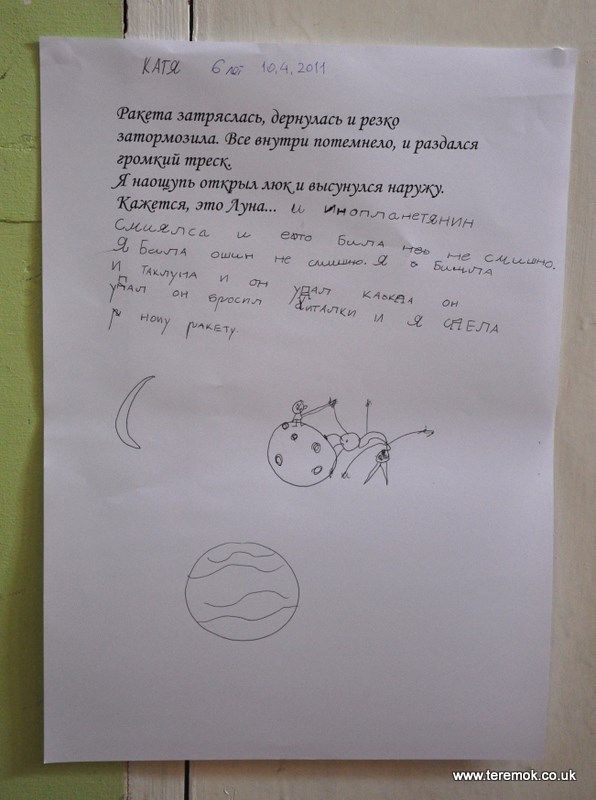 КАТЯ 6 лет 10.4.2011
Ракета затряслась, дернулась и резко
затормозила. Все внутри потемнело, и раздался
громкий треск.
Я наощупь открыл люк и высунулся наружу.
Кажется, это Луна... и инопланетянин
смиялса и ето била не смишно.
Я била ошин не смишно. Я
И таклуна и он упал када он
упал он бросил и я
ноиу ракету.
www.teremok.co.uk